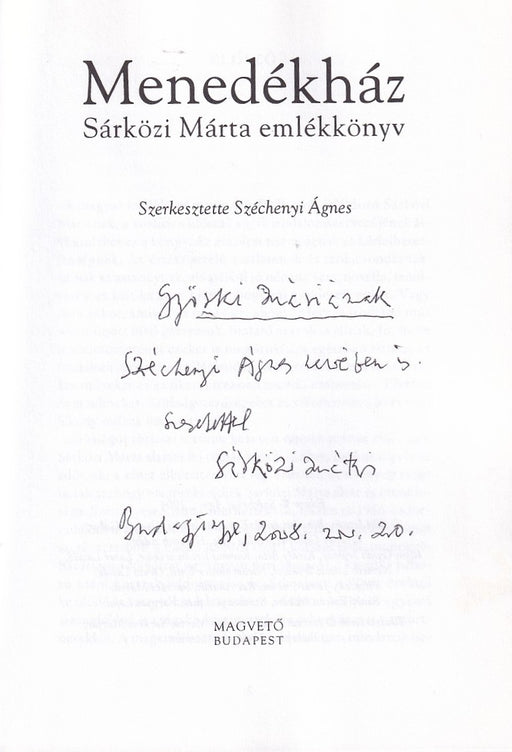 Menedékház
Sárközi Márta emlékkönyv
Szerkesztette Széchenyi Ágnes
Győrki Máriának
Széchenyi Ágnes nevében is
szeretettel
Sárközi Mátyás
Budapest, 2008. 20.
MAGVETŐ
BUDAPEST